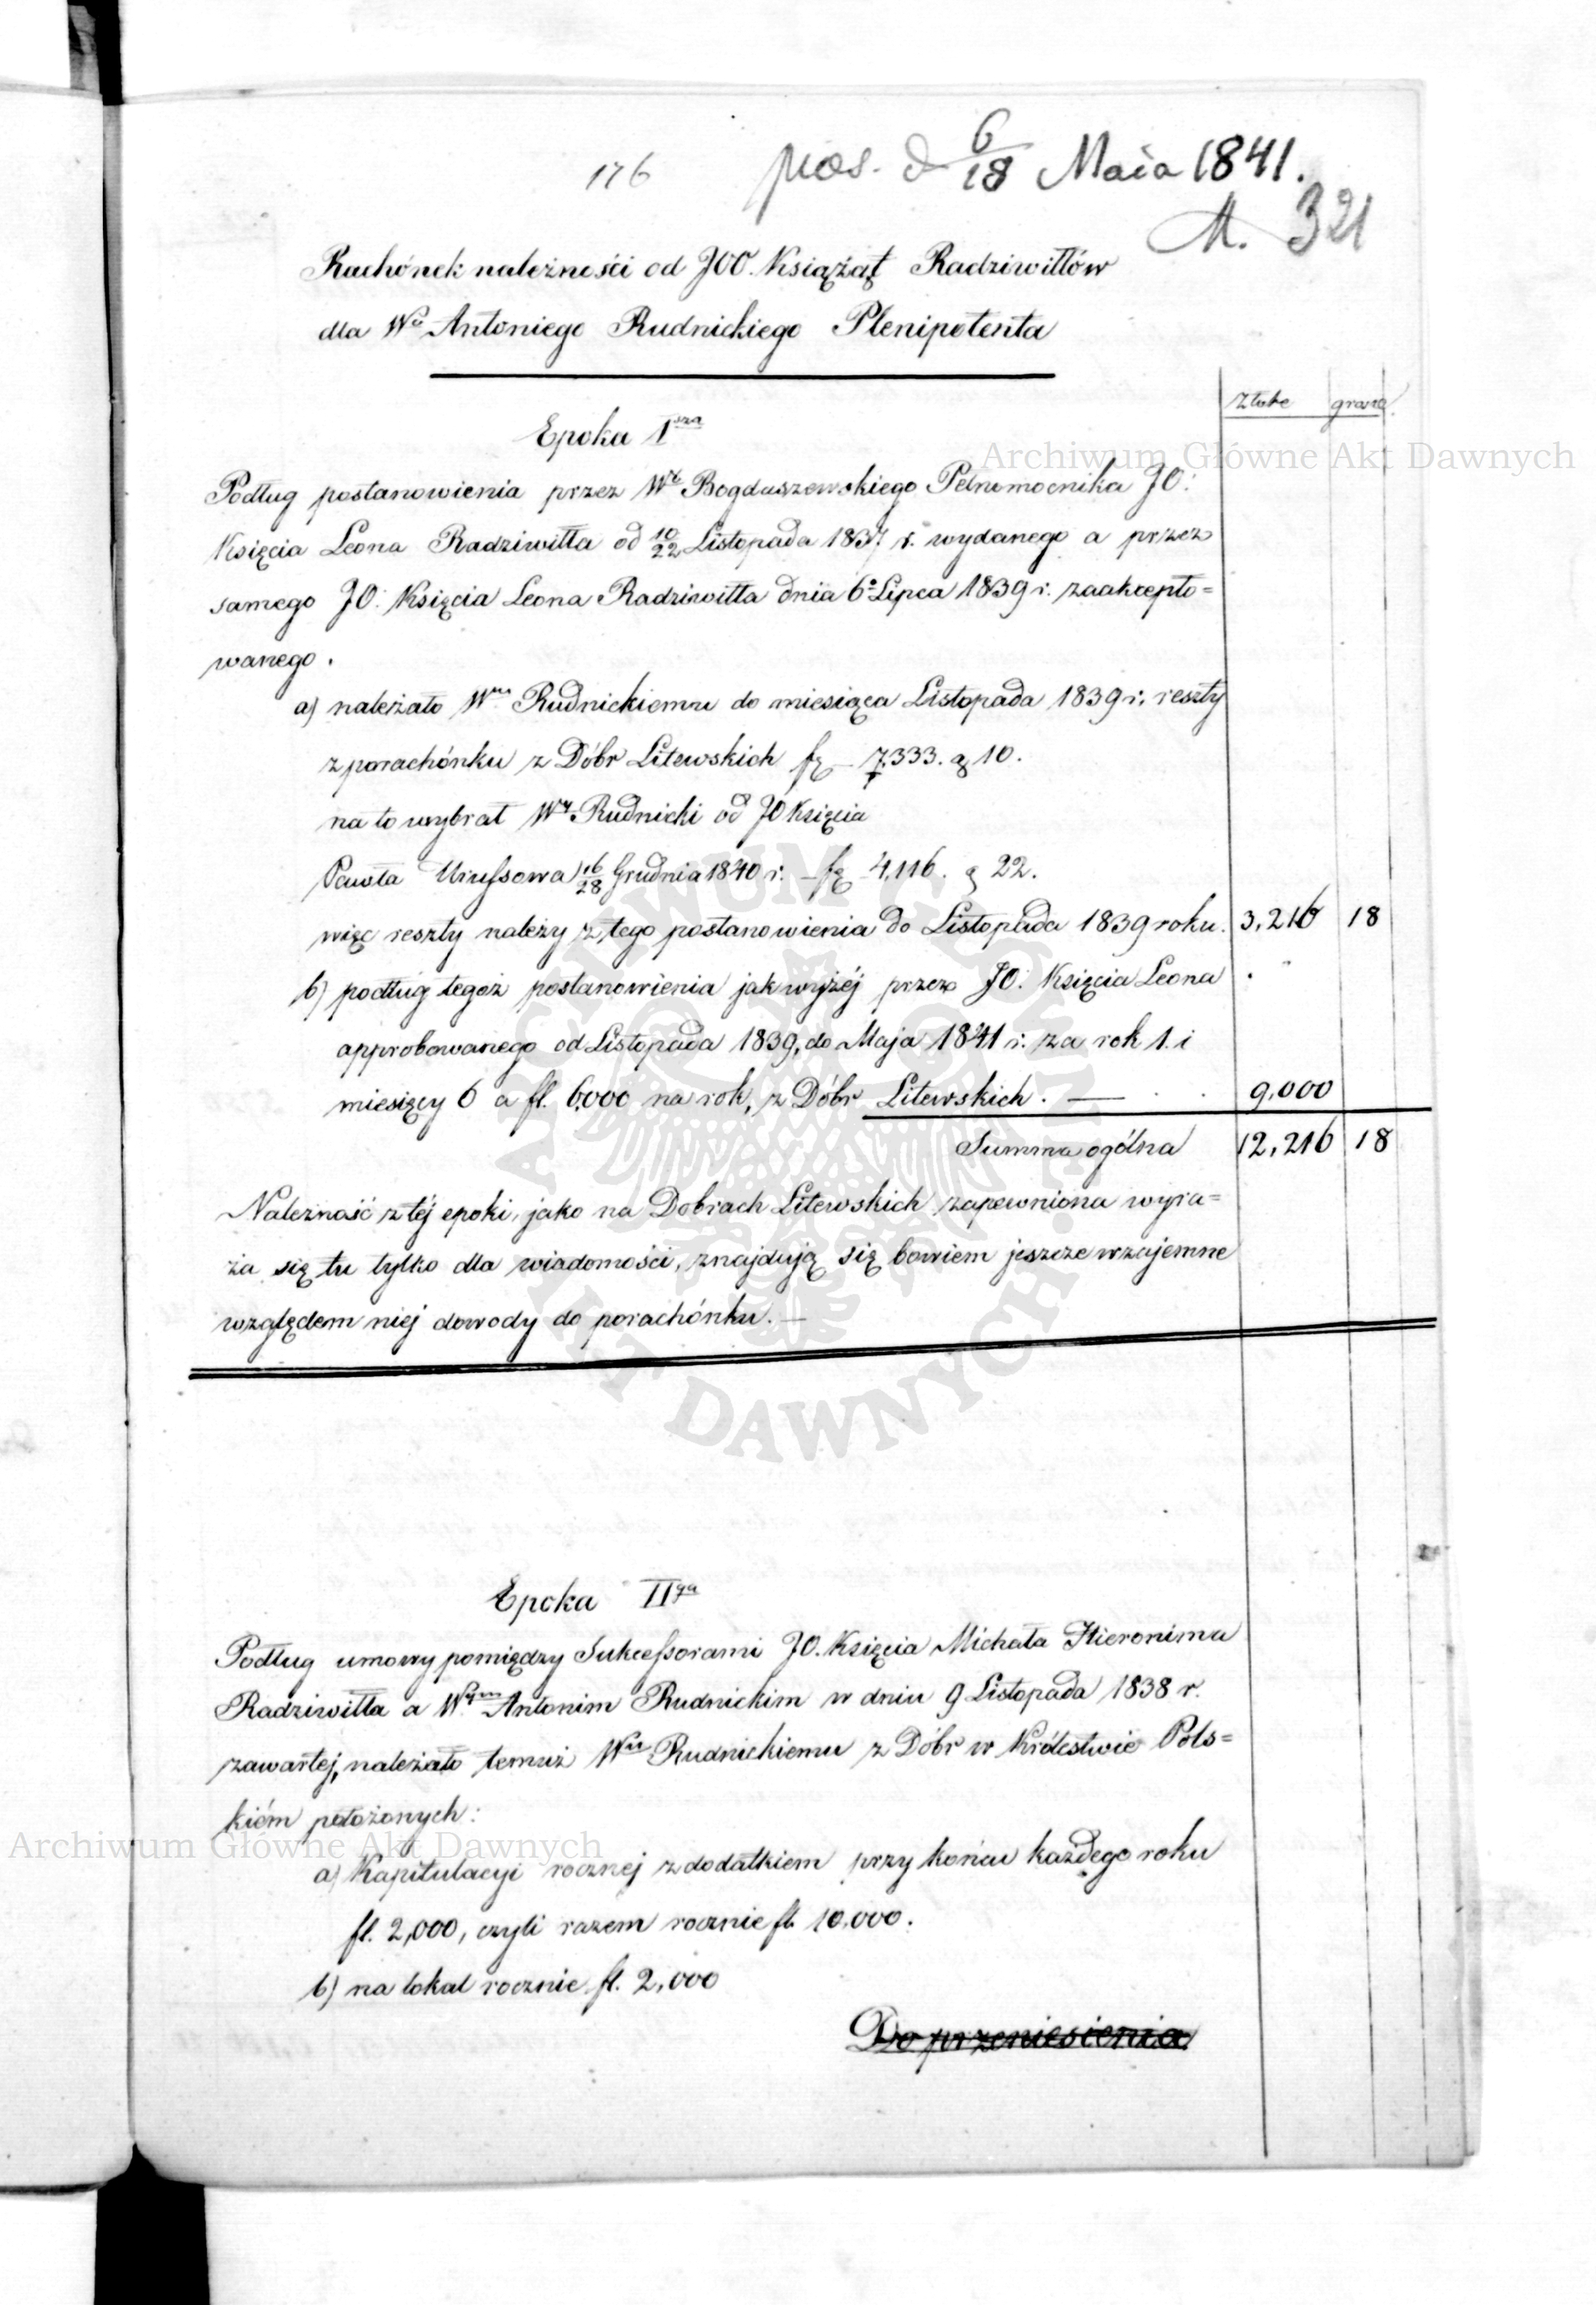 176
præs. d 6/18 Maia 1841.
A. 321
Rachónek należności od JOO. Książąt Radziwiłłów
dla Wo Antoniego Rudnickiego Plenipotenta
Złote grosze
Epoka 1sza
Podług postanowienia przez Wo Bogduszewskiego Pełnomocnika JO:
Księcia Leona Radziwiłła od 10/22 Listopada 1837 r. wydanego a przez
samego JO: Księcia Leona Radziwiłła dnia 6o Lipca 1839 r. zaakcepto=
wanego.
a) należało Wmu Rudnickiemu do miesiąca Listopada 1839 r. reszty
z porachónku z Dóbr Litewskich fl. 7,333. g 10.
na to wybrał Wy Rudnicki od JO Księcia
Pawła Urussowa 16/28 Grudnia 1840 r. – fl 4,116. g 22.
więc reszty należy z tego postanowienia do Listopada 1839 roku. 3,216 18
b) podług tegoż postanowienia jak wyżéj przez JO: Księcia Leona
approbowanego od Listopada 1839, do Maja 1841 r. za rok 1. i
miesięcy 6 a fl. 6,000 na rok, z Dóbr Litewskich. — 9,000
Summa ogólna 12,216 18
Należność z téj epoki, jako na Dobrach Litewskich zapewniona wyra=
ża się tu tylko dla wiadomości, znajdują się bowiem jeszcze wzajemne
względem niéj dowody do porachónku. —
Epoka IIga
Podług umowy pomiędzy Sukcessorami JO. Księcia Michała Hieronima
Radziwiłła a Wym Antonim Rudnickim w dniu 9 Listopada 1838 r.
zawartej, należało temuż Wmu Rudnickiemu z Dóbr w Królestwie Pols=
kiém położonych:
a) Kapitulacyi rocznej z dodatkiem przy końcu każdego roku
fl. 2,000, czyli razem rocznie fl. 10,000.
b) na lokal rocznie fl. 2,000
Do przeniesienia
Archiwum Główne Akt Dawnych
Archiwum Główne Akt Dawnych
ARCHIWUM GŁÓWNE AKT DAWNYCH